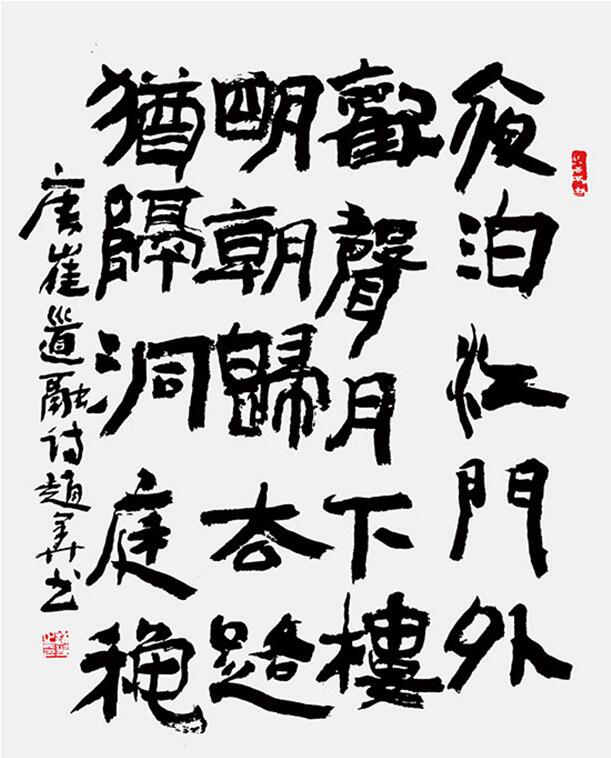 夜泊江門外
歡聲月下樓
明朝歸去路
猶隔洞庭穐
唐崔道融诗趙书